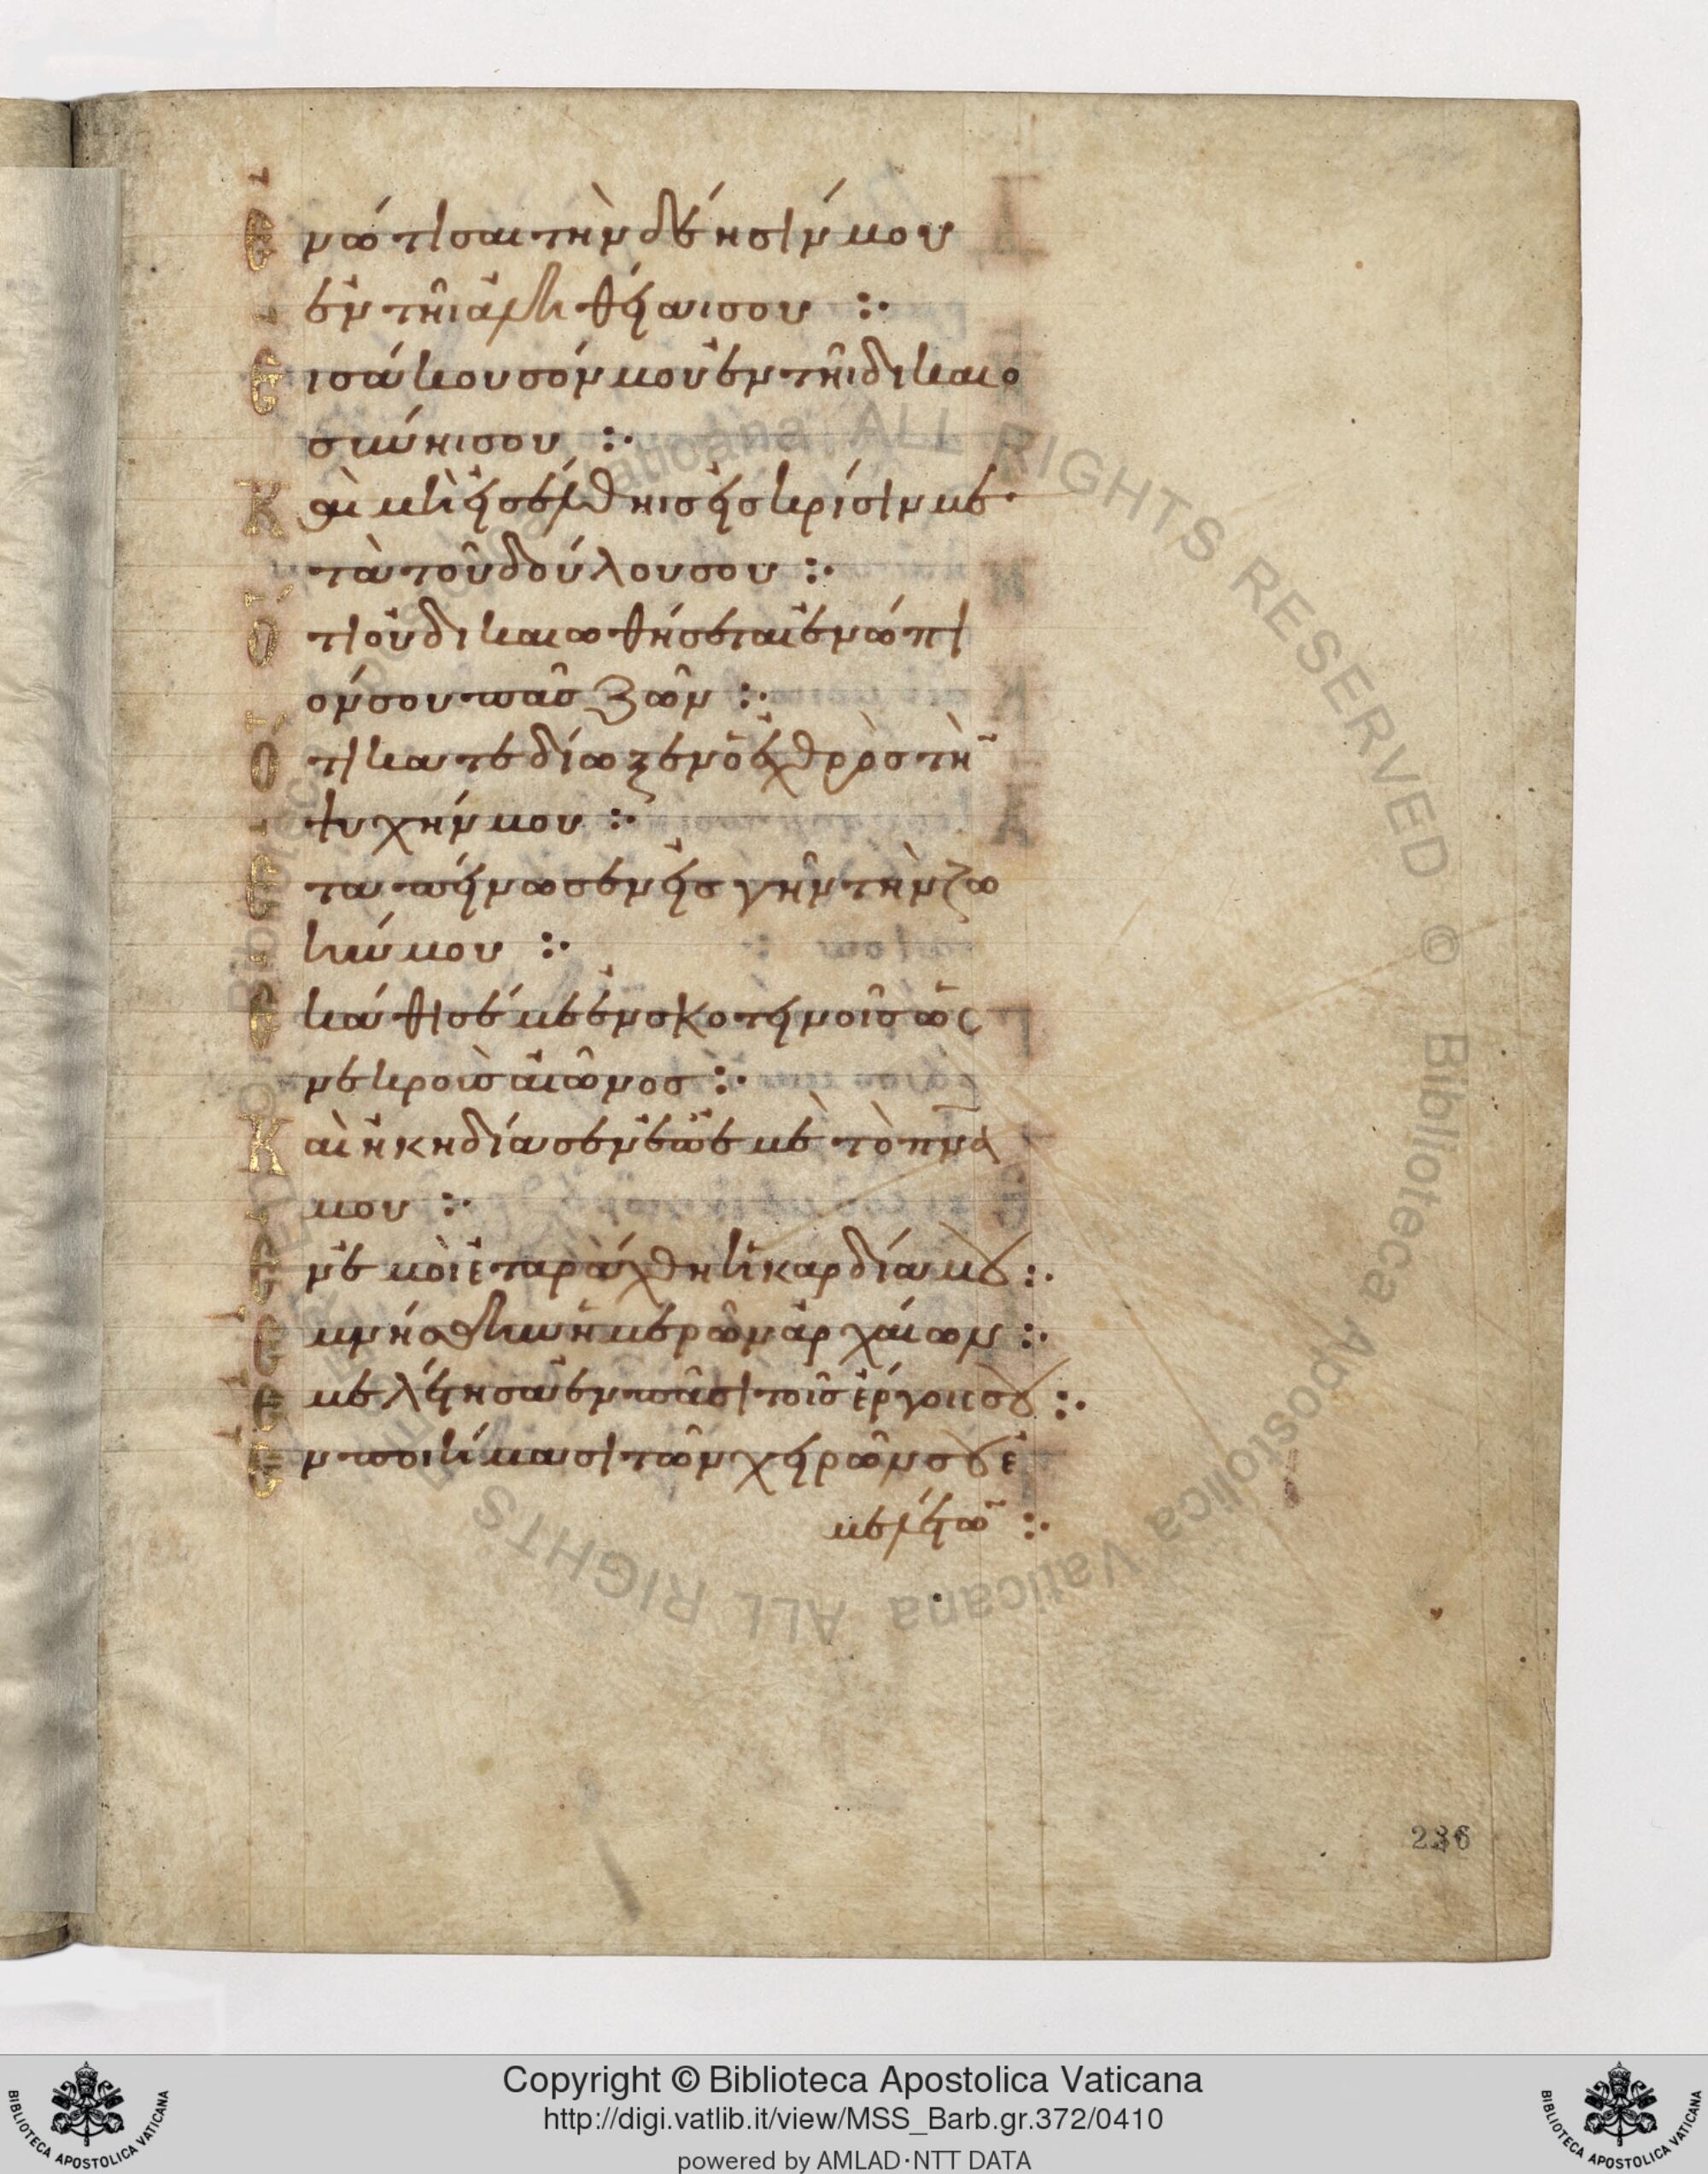 Ἐνώτισαι τὴν δέησίν μου
ἐν τῆι ἀληθείαι σου :·
Εἰσάκουσόν μου ἐν τῆι δικαιο
σύνηι σου :·
Καὶ μὴ εἰσέλθηις εἰς κρίσιν με
τὰ τοῦ δούλου σου :·
Ὅτι οὐ δικαιωθήσεται ἐνώπι
όν σου πᾶς ζῶν :·
Ὅτι κατεδίωξεν ὁ ἐχθρὸς τὴν
ψυχήν μου :·
Ἐταπείνωσεν εἰς γῆν τὴν ζω
ήν μου :·
Ἐκάθισέ με ἐν σκοτεινοῖς ὡς
νεκροὺς αἰῶνος :·
Καὶ ἠκηδίασεν ἐπ' ἐμὲ τὸ πνα
μου :·
Ἐν ἐμοὶ ἐταράχθη ἡ καρδία μου :·
Ἐμνήσθην ἡμερῶν ἀρχαίων :·
Ἐμελέτησα ἐν πᾶσι τοῖς ἔργοις σου :·
Ἐν ποιήμασι τῶν χειρῶν σου ἐ
μελέτων :·
Copyright © Biblioteca Apostolica Vaticana
http://digi.vatlib.it/view/MSS_Barb.gr.372/0410
powered by AMLAD·NTT DATA
BIBLIOTECA APOSTOLICA VATICANA
BIBLIOTECA APOSTOLICA VATICANA
236
© Biblioteca Apostolica Vaticana ALL RIGHTS RESERVED